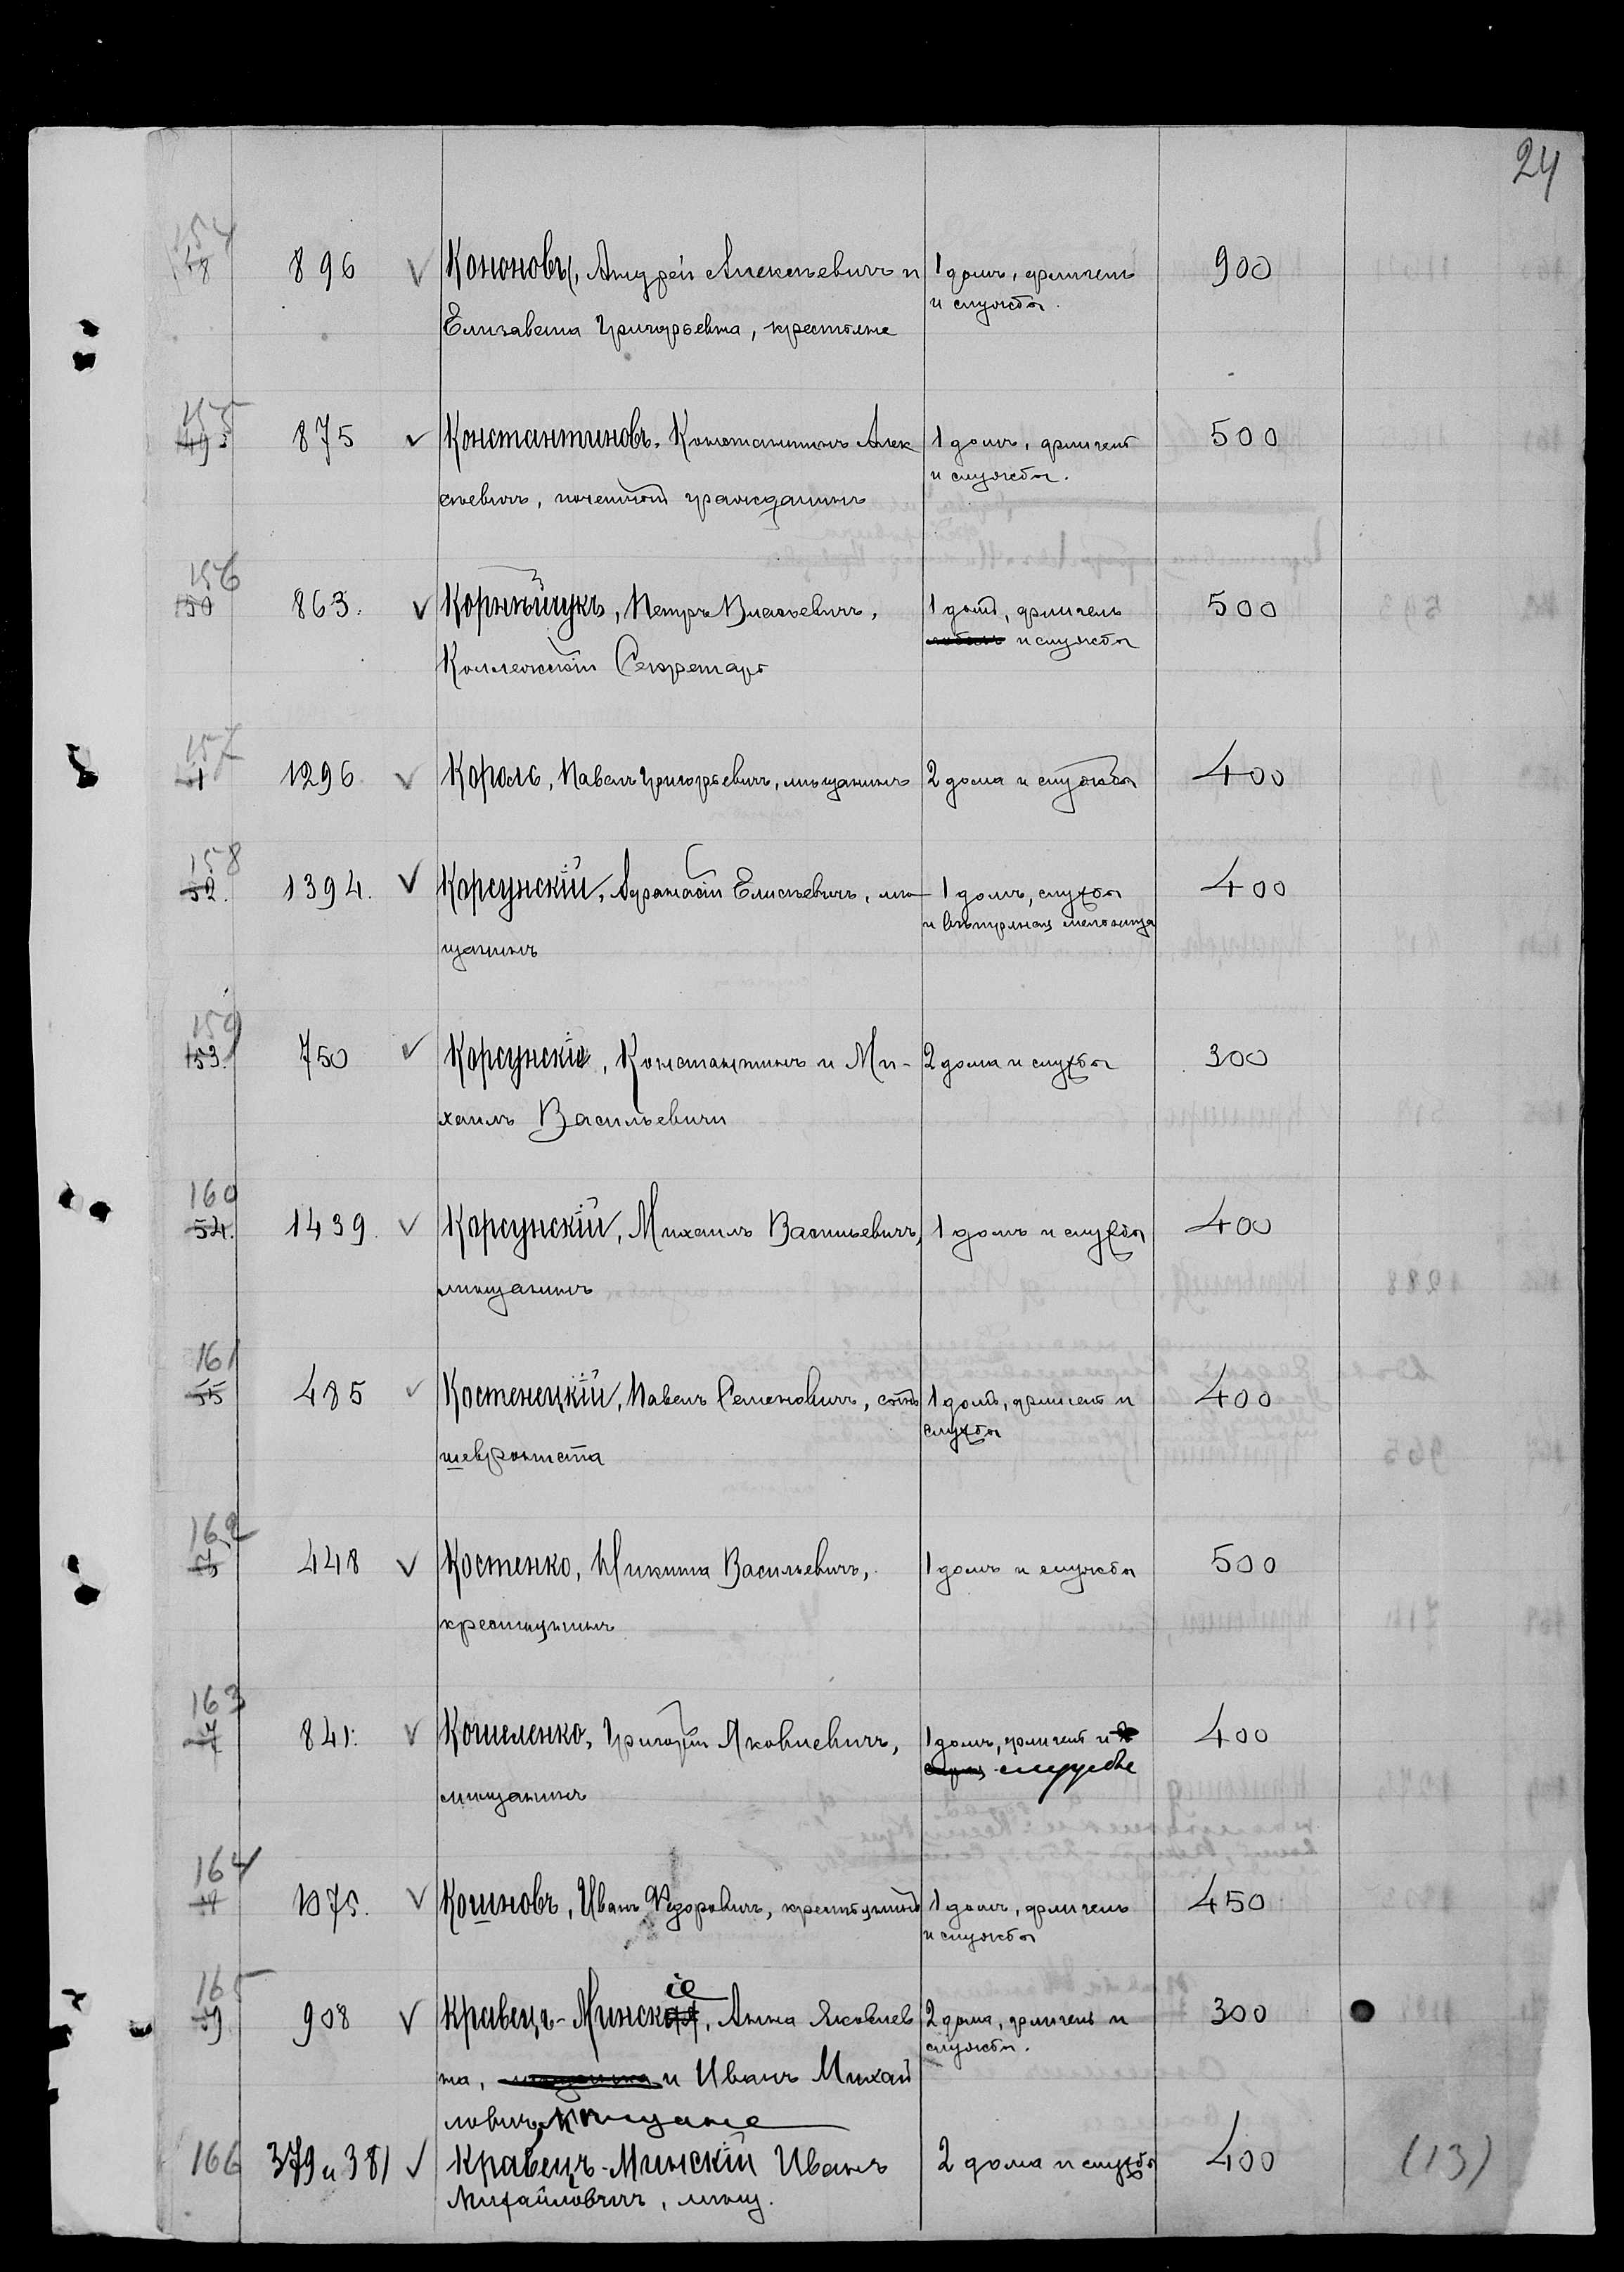 24
154
896 V Кононовы, Андрей Алексѣевичъ и 1 домъ, флигель 900
и службы.
Елизавета Григорьевна, крестьяне
155
149. 875 V Константиновъ, Константинъ Алек 1 домъ, флигель 500
и службы.
сѣевичъ, почетный гражданинъ
156
150 863. V Корнѣйчукъ, Петръ Власьевичъ, 1 домъ, флигель 500
и службы
Коллежскій Секретарь
157
1296 V Король, Павелъ Григорьевичъ, мѣщанинъ 2 дома и службы 400
158
52. 1394. V Корсунскій, Елисѣевичъ, мѣ- 1 домъ, службы 400
и вѣтряная мельница
щанинъ
159
153. 750 V Корсунскіе, Константинъ и Ми- 2 дома и службы 300
хаилъ Васильевичи
160
54. 1439. V Корсунскій, Михаилъ Васильевичъ, 1 домъ и службы 400
мѣщанинъ
161
55 485 V Костенецкій, Павелъ Семеновичъ, сынъ 1 домъ, флигель и 400
службы
шеврониста
162
448 V Костенко, Никита Васильевичъ, 1 домъ и службы 500
крестьянинъ
163
7 841. V Кошеленко, Григорій Яковлевичъ, 1 домъ, флигель и 400
службы
мѣщанинъ
164
1075. V Кошновъ, Иванъ Федоровичъ, крестьянинъ 1 домъ, флигель 450
и службы
165
59 908 V Кравецъ-Минскіе, Анна Яковлев 2 дома, флигель и 300
службы.
на, и Иванъ Михай
ловичъ, мѣщане
166 379 и 381 V Кравецъ-Минскій Иванъ 2 дома и службы 400 (13)
Михайловичъ, мѣщ.